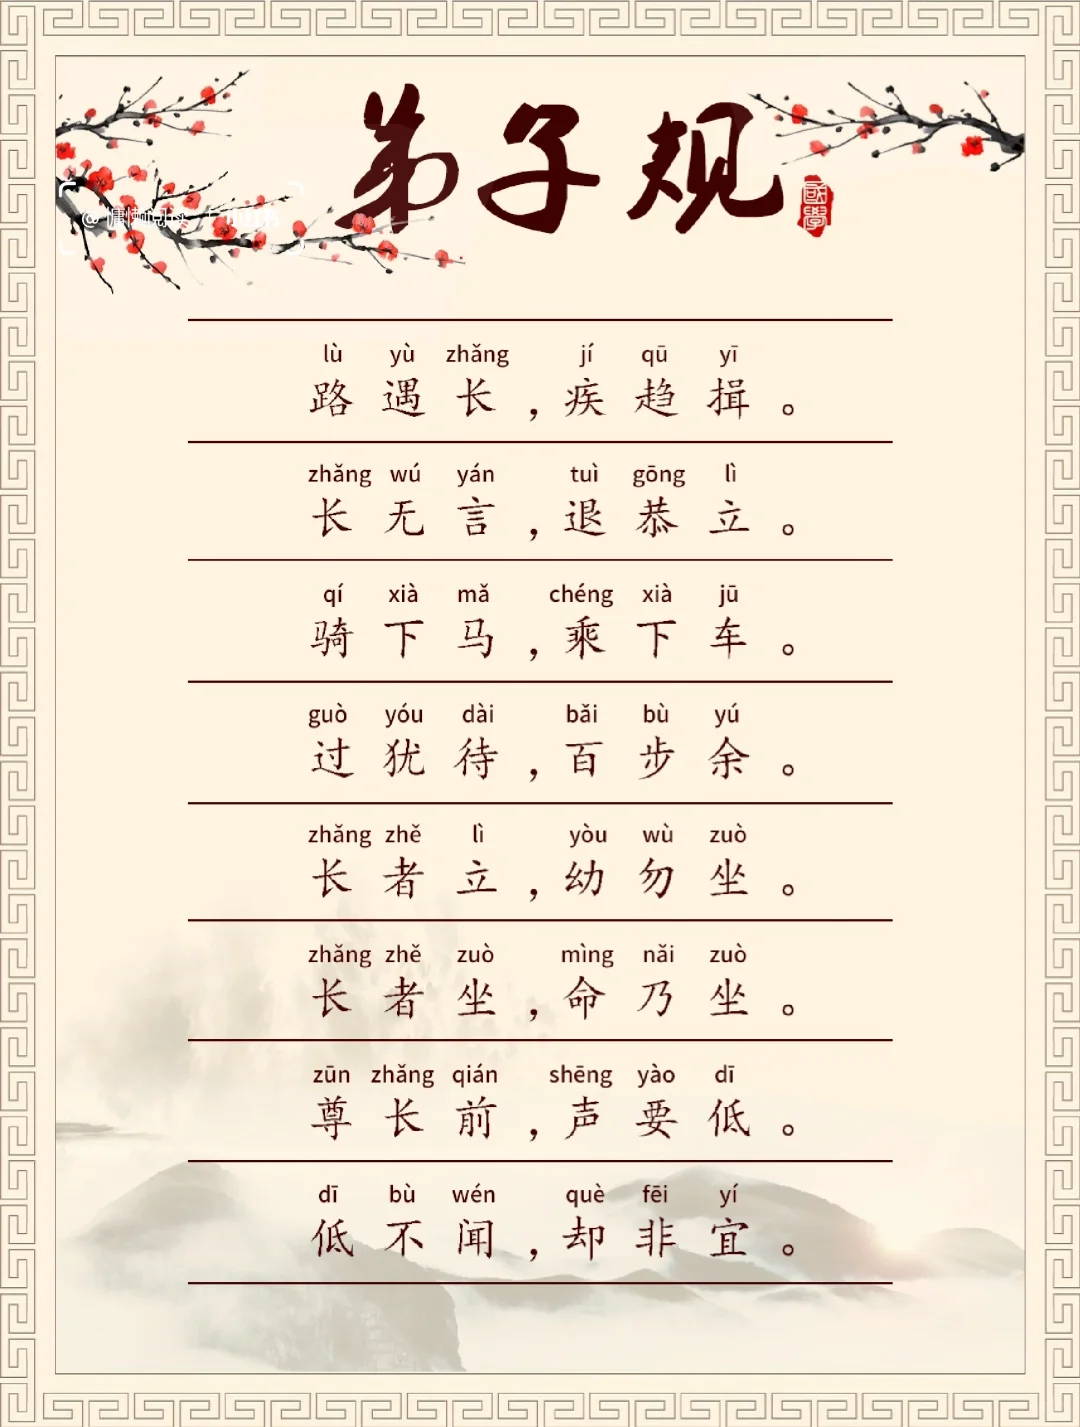 弟子规
國學
lù yù zhǎng jí qū yī
路遇长，疾趋揖。
zhǎng wú yán tuì gōng lì
长无言，退恭立。
qí xià mǎ chéng xià jū
骑下马，乘下车。
guò yóu dài bǎi bù yú
过犹待，百步余。
zhǎng zhě lì yòu wù zuò
长者立，幼勿坐。
zhǎng zhě zuò mìng nǎi zuò
长者坐，命乃坐。
zūn zhǎng qián shēng yào dī
尊长前，声要低。
dī bù wén què fēi yí
低不闻，却非宜。